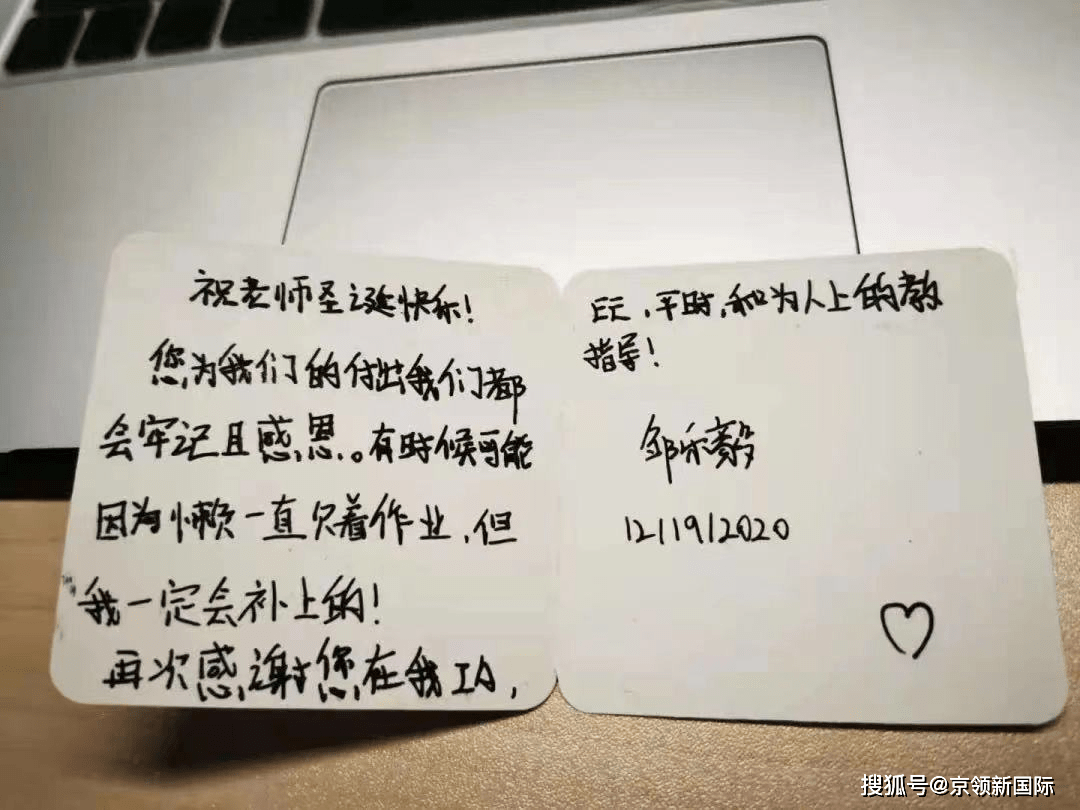 祝老师圣诞快乐!
您为我们的付出我们都
会牢记且感恩。有时候可能
因为懒一直欠着作业,但
我一定会补上的!
再次感谢您在我IA,
EE,平时,和为人上的教
指导!
邹乐毅
12/19/2020
搜狐号@京领新国际